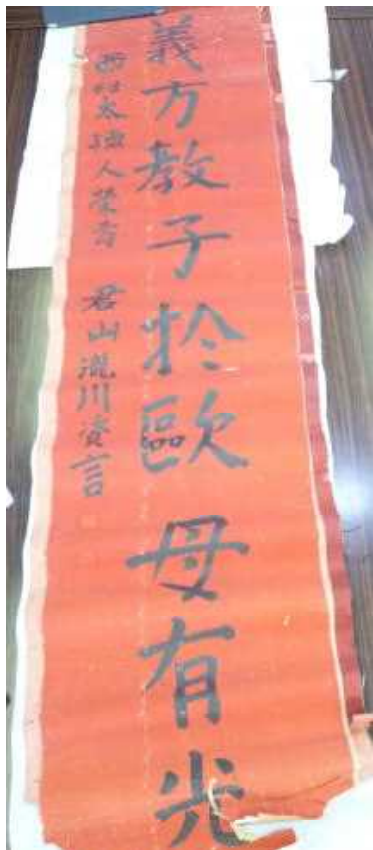 義方教子扵歐母有光
西村太孺人榮壽 君山瀧川資言